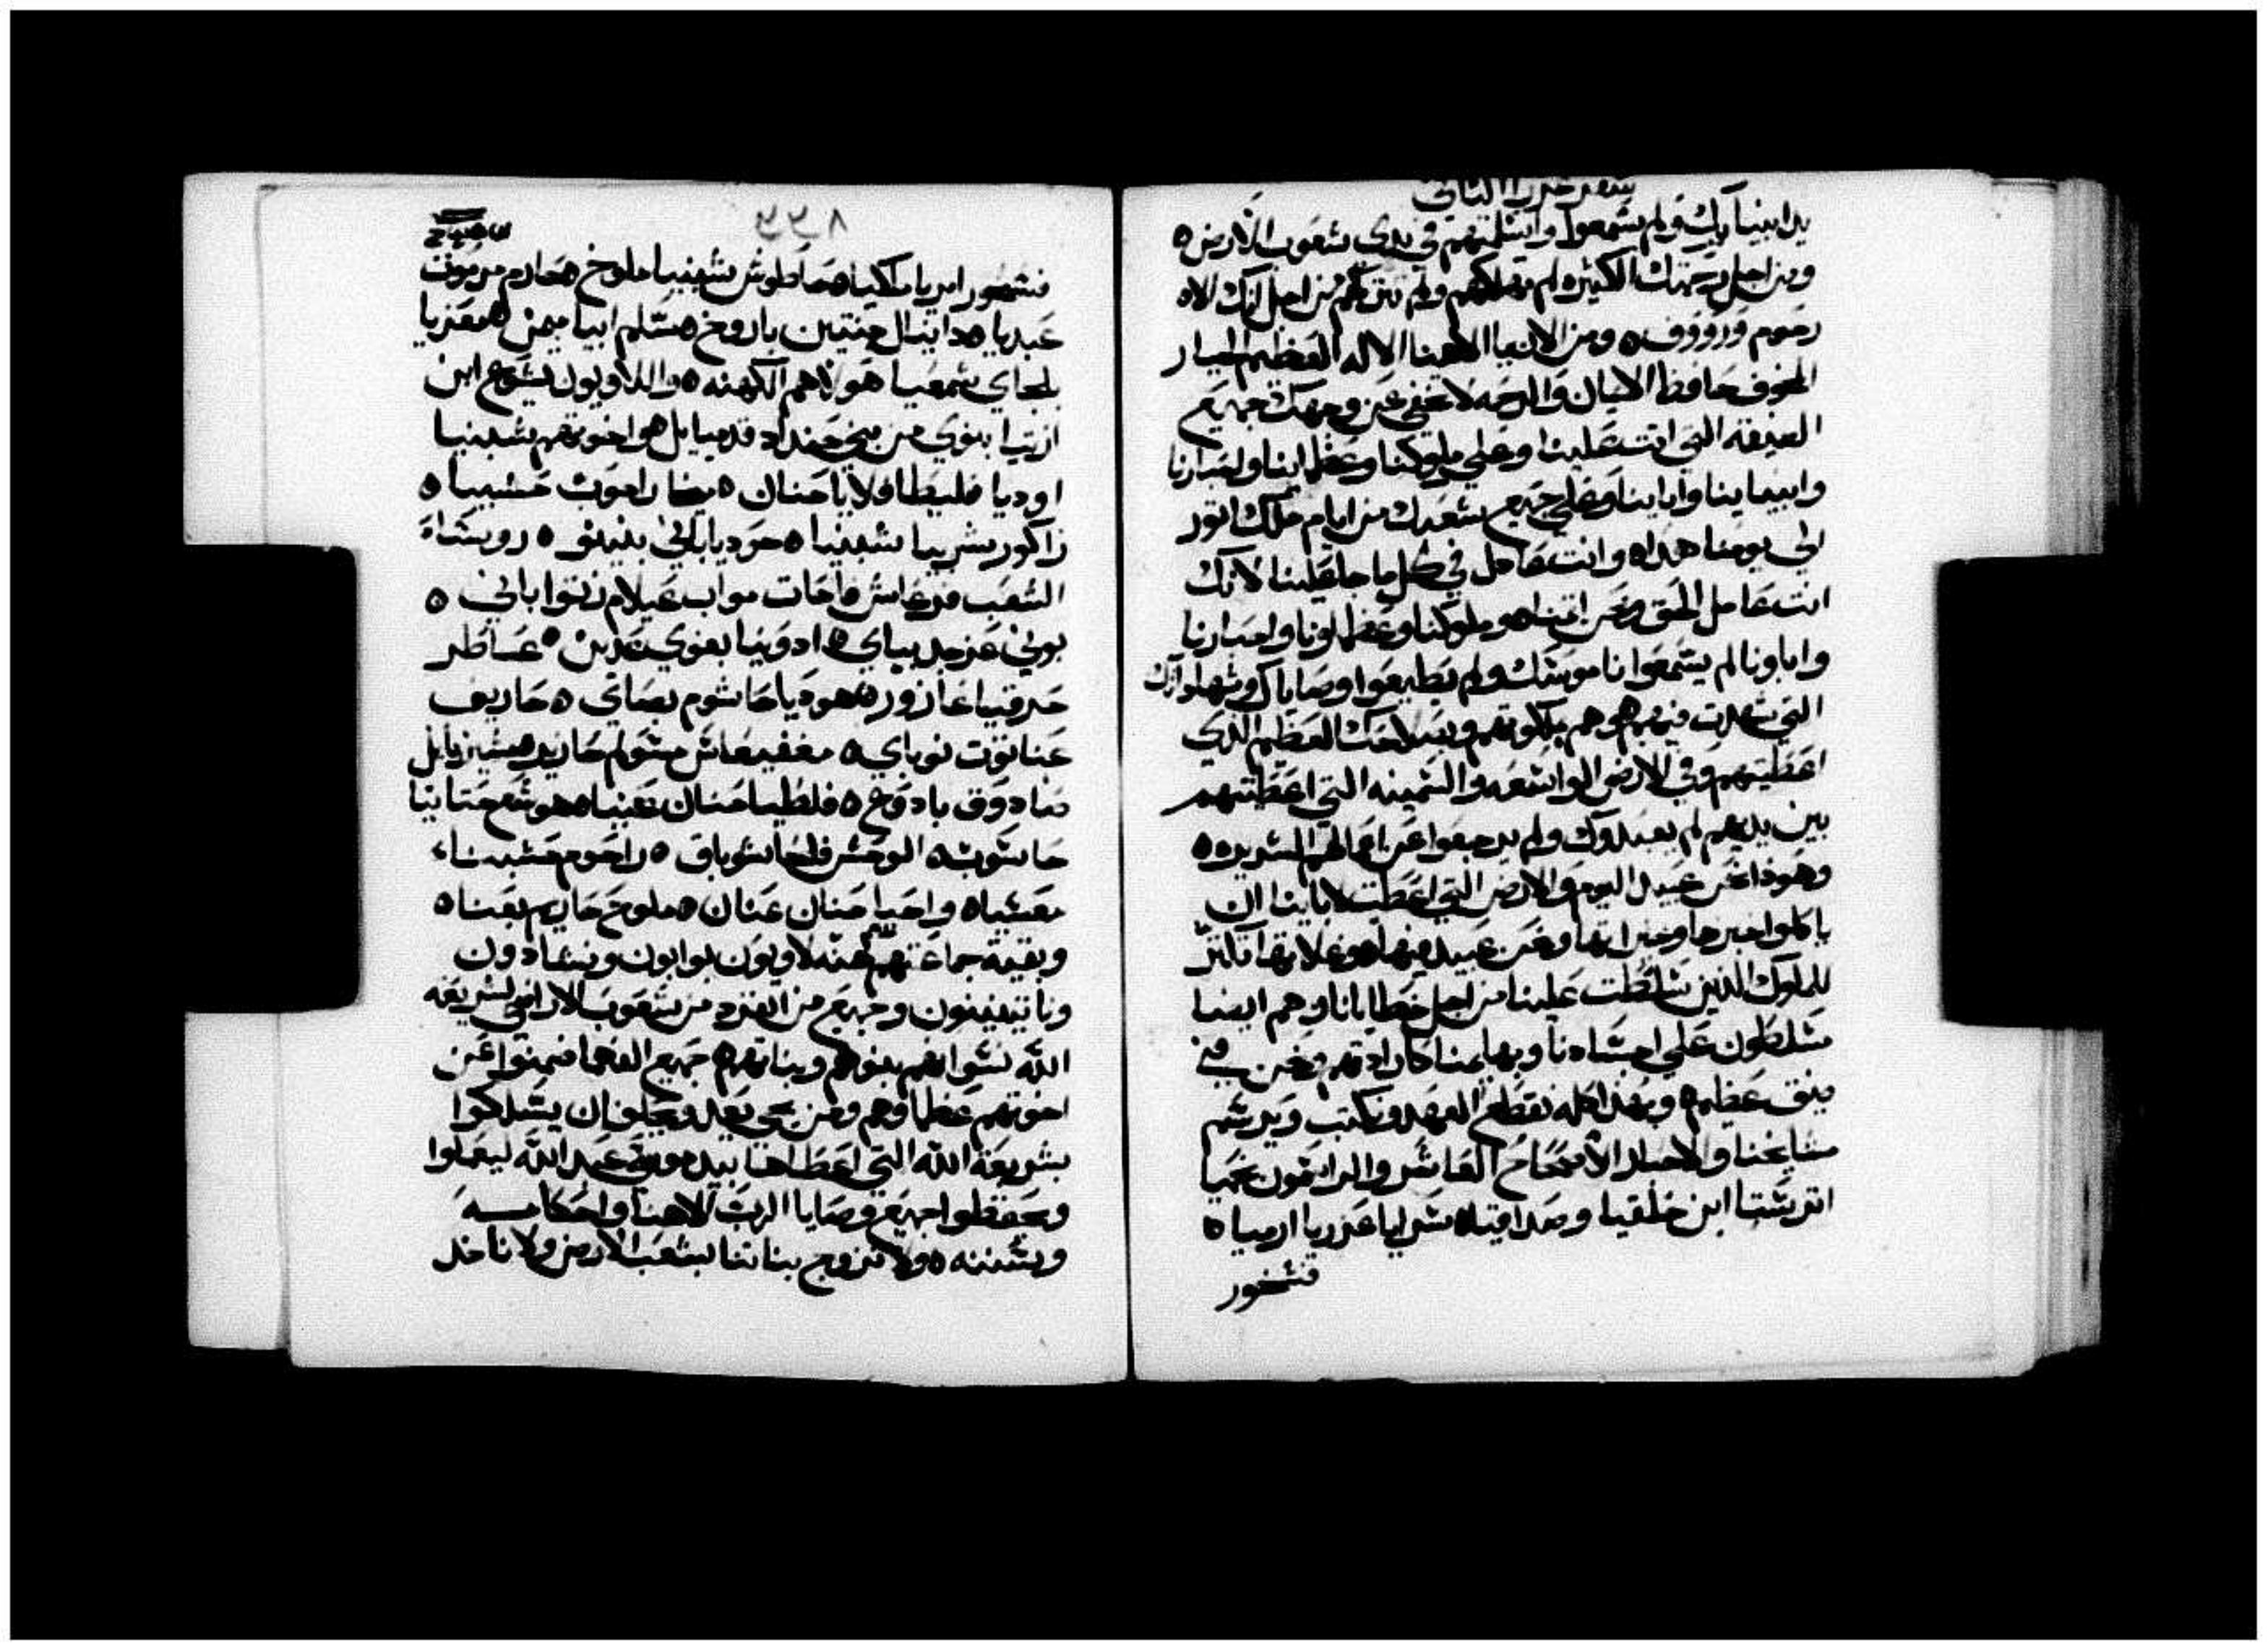 سفر عزرا الثاني
يد انبياك ولم يسمعوا واسلمتهم في يدي شعوب الارض ه
ومن اجل رحمتك الكثيره لم تهلكهم ولم تتركهم من اجل انك الاه
رحوم ورووف ه ومن الان يا الاهنا الاله العظيم الجبار
المخوف حافظ الايمان والرحمه لا تخفي عن وجهك جميع
الضيقه التي اتت علينا وعلي ملوكنا وعظماينا واحبارنا
وانبيياينا واباينا وعلي جميع شعبك من ايام ملك اتور
الي يومنا هداه وانت عادل في كل ما جا علينا لانك
انت عامل الحق ونحن اتمناه وملوكنا وعظماونا واحبارنا
واباونا لم يسمعوا ناموسك ولم يطيعوا وصاياك وشهاداتك
التي شهدت فيهم ه وهم بملكوتهم وبصلاحك العظيم الذي
اعطيتهم وفي الارض الواسعه والسمينه التي اعطيتهم
بين يديهم لم يعبدوك ولم يرجعوا عن اعمالهم الشريره ه
وهوذا نحن عبيد اليوم والارض التي اعطيت لاباينا ان
ياكلوا خبزها وخيراتها ونحن عبيد فيها ه وغلاتها تكثر
للملوك الذين سلطت علينا من اجل خطايانا وهم ايضا
مسلطون علي اجسادنا وبهايمنا كارادتهم ونحن في
ضيق عظيم ه وبهذا كله نقطع العهد ونكتب ويرشم
مشايخنا والاحبار
ابن خلقيا وصداقياه سرايا عزريا ارمياه
فشحور
فشحور امريا ملكيا ه حاطوش شبنيا ملوخ ه حارم مرموت
عبديا ه دانيال جنتين باروخ ه مسلم ابيا ميمن ه معزيا
بلجاي شمعيا هولاهم الكهنه ه واللاويون يشوع ابن
ازنيا بنوي من بني حنداد قدمياىل ه واخوتهم شبنيا
اوديا قليطا فلايا حنان ه ميخا راحوب حشبيا ه
زاكور شربيا شبنيا ه حوديا باني بنينو ه روساة
الشعب فرعاش فاحات مواب عيلام زتوا باني ه
بوني عزجد بباي ه ادونيا بغوي عدين ه عاطر
حزقيا عازور ه هوديا حاشوم بصاي ه حاريف
عناتوت نوباي ه مغفيعاش مشولم حازير ه مشيزبايل
صادوق يادوع ه فلطيا حنان عنيا ه هوشع حنانيا
حاشوب ه الوحش فلحا شوباق ه راحوم حشبنا
معسيا ه واحيا حنان عنان ه ملوخ حاريم بعنا ه
وبقية جماعتهم الكهنه لاويون بوابون ومنشادون
وناتينينون وجميع من انفرد من شعوب الاراضي لشريعة
الله نسوانهم بنوهم وبناتهم ه جميع الفهما فمنتوا عن
اخوتهم عظماوهم ومن يجي بعد ويحلف ان يسلكوا
بشريعة الله التي اعطاها بيد موسي عبد الله ليعملوا
ويحفظوا جميع وصايا الرب الاهنا واحكامه
وسننه ه ولا نزوج بناتنا لشعب الارض ولا ناخد